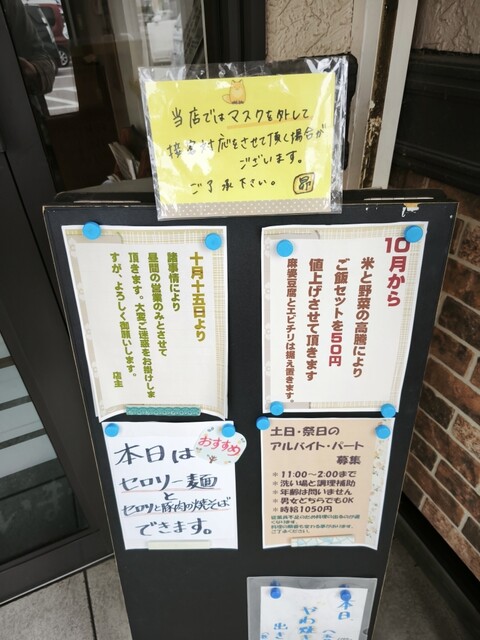 当店ではマスクを外して
接客対応をさせて頂く場合が
ございます。
ご了承下さい。
昴
十月十五日より
諸事情により
昼間の営業のみとさせて
頂きます。大変ご迷惑をお掛けしま
すが、よろしく御願いします。
店主
10月から
米と野菜の高騰により
ご飯セットを50円
値上げさせて頂きます
麻婆豆腐とエビチリは据え置きます。
おすすめ
本日は
セロリー麺
と
セロリと豚肉の焼そば
できます。
土日・祭日の
アルバイト・パート
募集
※ 11:00～2:00まで
※ 洗い場と調理補助
※ 年齢は問いません
※ 男女どちらでもOK
※ 時給1050円
従業員不足のため料理の出るのが遅
くなります。
ご了承ください。
本日
やわ焼き